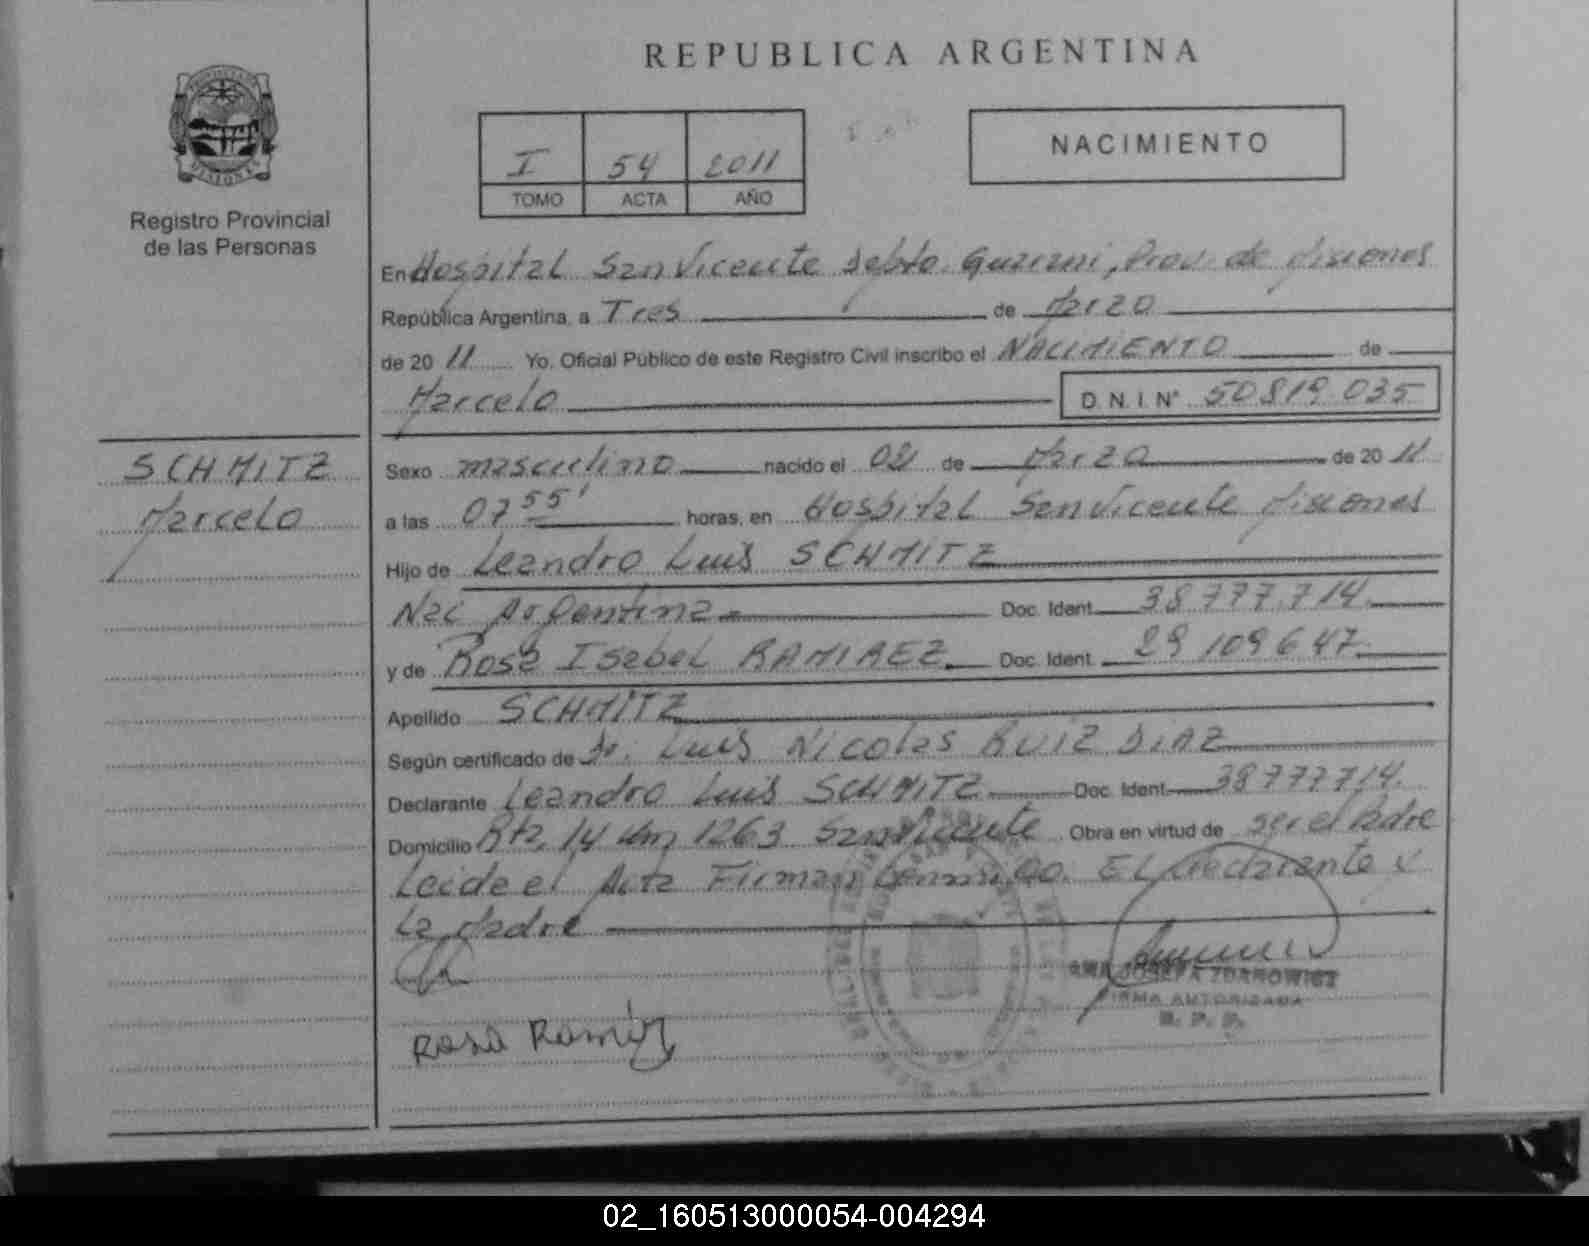 REPUBLICA ARGENTINA
PROVINCIA DE
MISIONES
Registro Provincial
de las Personas
I 54 2011
TOMO ACTA AÑO
NACIMIENTO
En Hospital San Vicente Depto. Guarani, Prov. de Misiones
República Argentina, a Tres de Marzo
de 20 11 Yo. Oficial Público de este Registro Civil inscribo el NACIMIENTO de
Marcelo D. N. I. N° 50 819 035
SCHMITZ
Marcelo
Sexo masculino nacido el 02 de Marzo de 20 11
a las 07 55' horas, en Hospital San Vicente Misiones
Hijo de Leandro Luis SCHMITZ
Nac Argentina Doc. Ident. 38 777.714
y de Rosa Isabel RAMIREZ Doc. Ident. 29 109 647
Apellido SCHMITZ
Según certificado de Dr. Luis Nicolas RUIZ DIAZ
Declarante Leandro Luis SCHMITZ Doc. Ident. 38 777714
Domicilio Rta. 14 Km 1263 San Vicente Obra en virtud de ser el Padre
Leida el Acta Firman conmigo. El declarante y
La Madre
JOSEFA ZDANOWICZ
FIRMA AUTORIZADA
R. P. P.
Rosa Ramirez
02_160513000054-004294